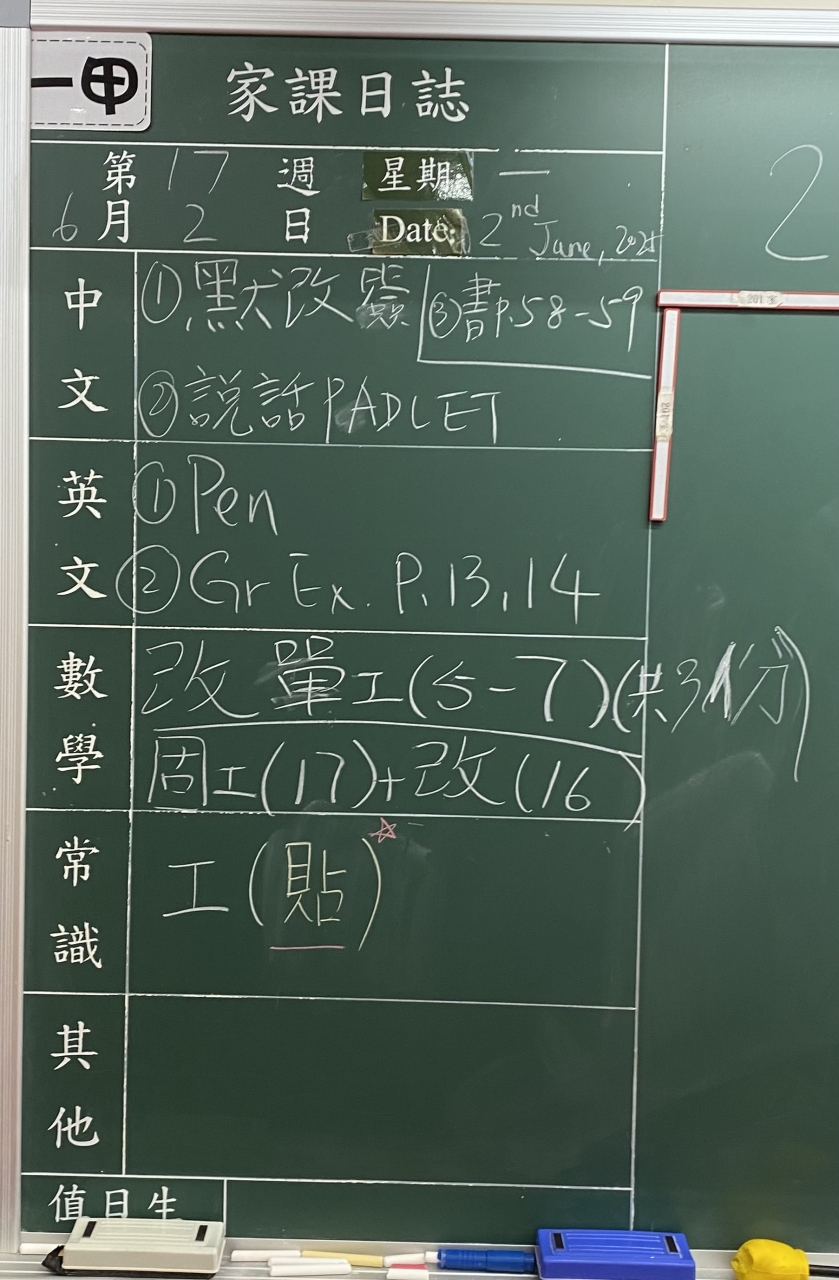 一甲
家課日誌
第 17 週 星期 一
6 月 2 日 Date: 2nd June, 2025
中文
①默改簽
③書p.58-59
②説話PADLET
英文
①Pen
②Gr Ex. P.13,14
數學
改單工(5-7)(共3份)
固工(17)+改(16)
常識
工(貼)
其他
值日生
2